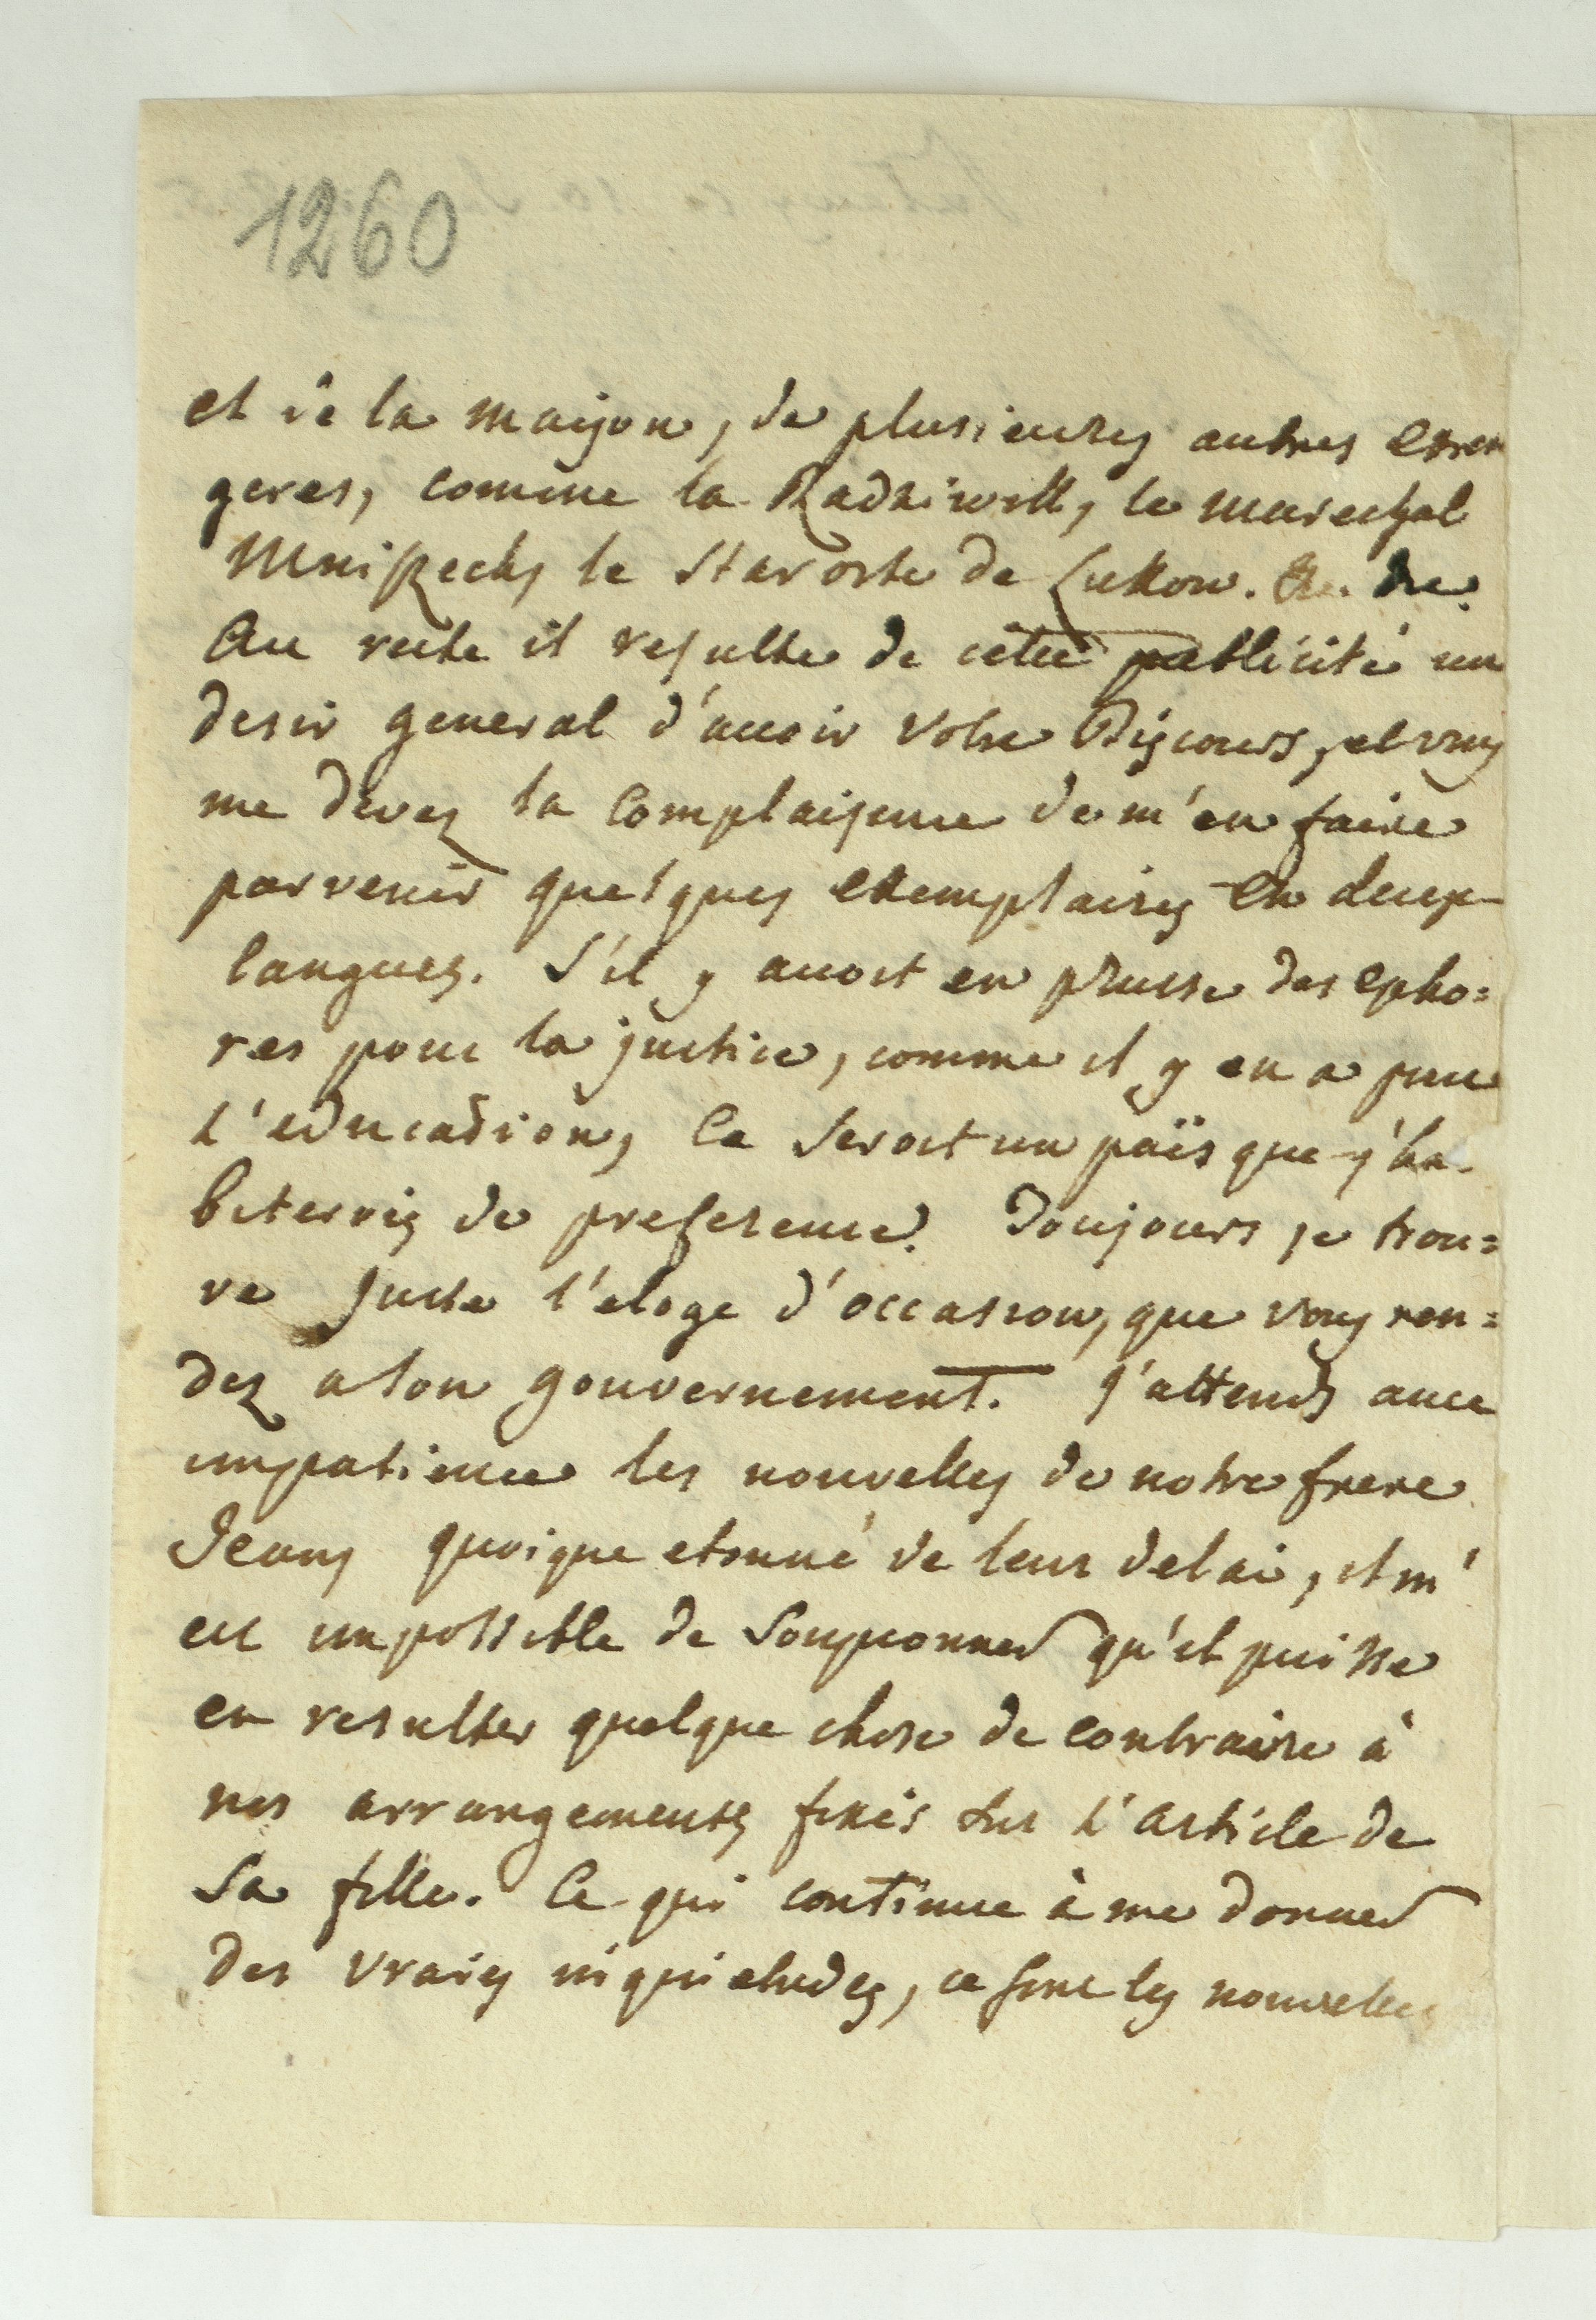 1260
et de la maison, de plusieurs autres etran
geres, comme la Radziwill, le marechal
Mniszech, le Staroste de Lukow. &c. &c.
Au reste il resulte de cette publicité un
desir general d'avoir votre Discours, et vous
me devez la Complaisance de m'en faire
parvenir quelques exemplaires en deux
langues. S'il y avoit en prusse des epho=
res pour la justice, comme il y en a pour
l'education, Ce Seroit un païs que j'ha-
biterois de preference. Toujours je trou=
ve juste l'eloge d'occasion, que vous ren=
dez a son gouvernement. J'attends avec
impatience les nouvelles de notre frere
Jean, quoique etonné de leur delai, il m'
est impossible de Soupçonner qu'il puisse
en resulter quelque chose de contraire à
nos arrangements fixés sur l'article de
Sa fille. Ce qui continue à me donner
des vraies inquietudes, ce sont les nouvelles